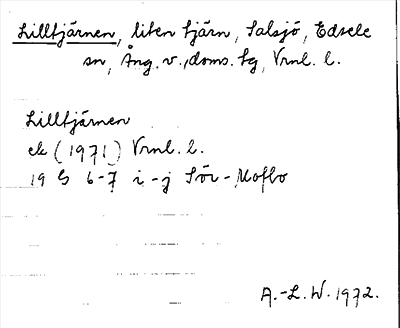 Lilltjärnen, liten tjärn, Salsjö, Edsele
sn, Ång. v. doms. tg, Vrnl. l.
Lilltjärnen
ek (1971) Vrnl. l.
19 G 6-7 i-j Sör-Moflo
A.-L. W. 1972.